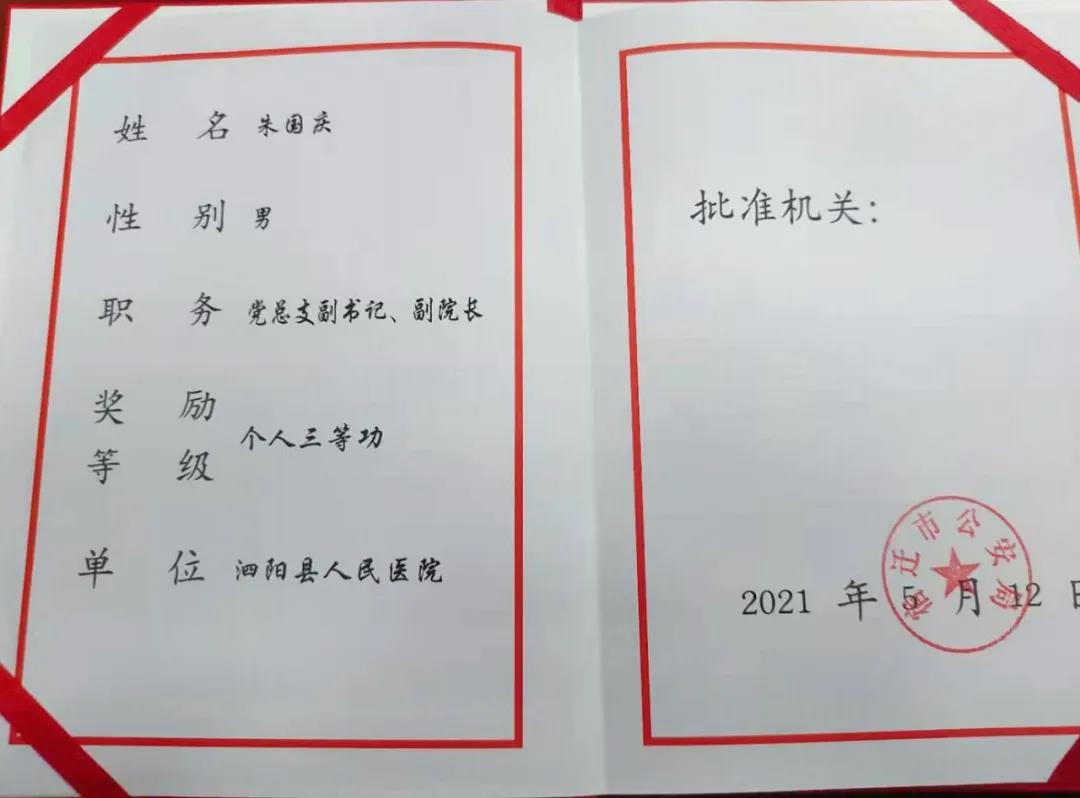 姓 名 朱国庆
性 别 男
职 务 党总支副书记、副院长
奖 励
等 级
个人三等功
单 位 泗阳县人民医院
批准机关：
宿迁市公安局
2021 年 5 月 12 日